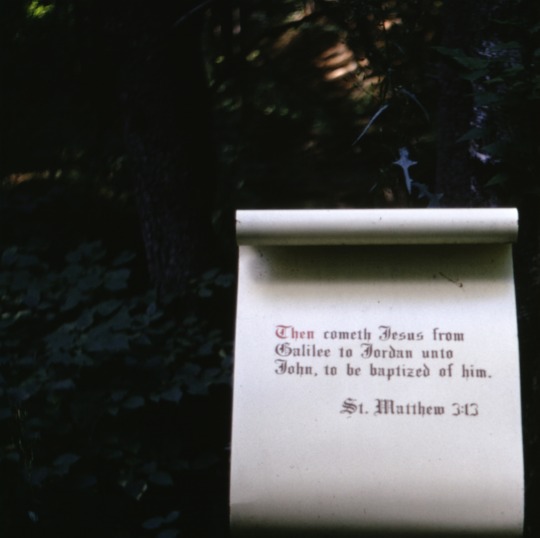 Then cometh Jesus from
Galilee to Jordan unto
John, to be baptized of him.
St. Matthew 3:13